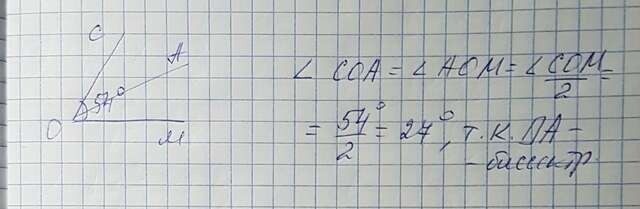 C
A
54°
O
M
∠ COA = ∠ AOM = ∠ COM/2 =
= 54°/2 = 27°, т.к. OA -
- биссектр.